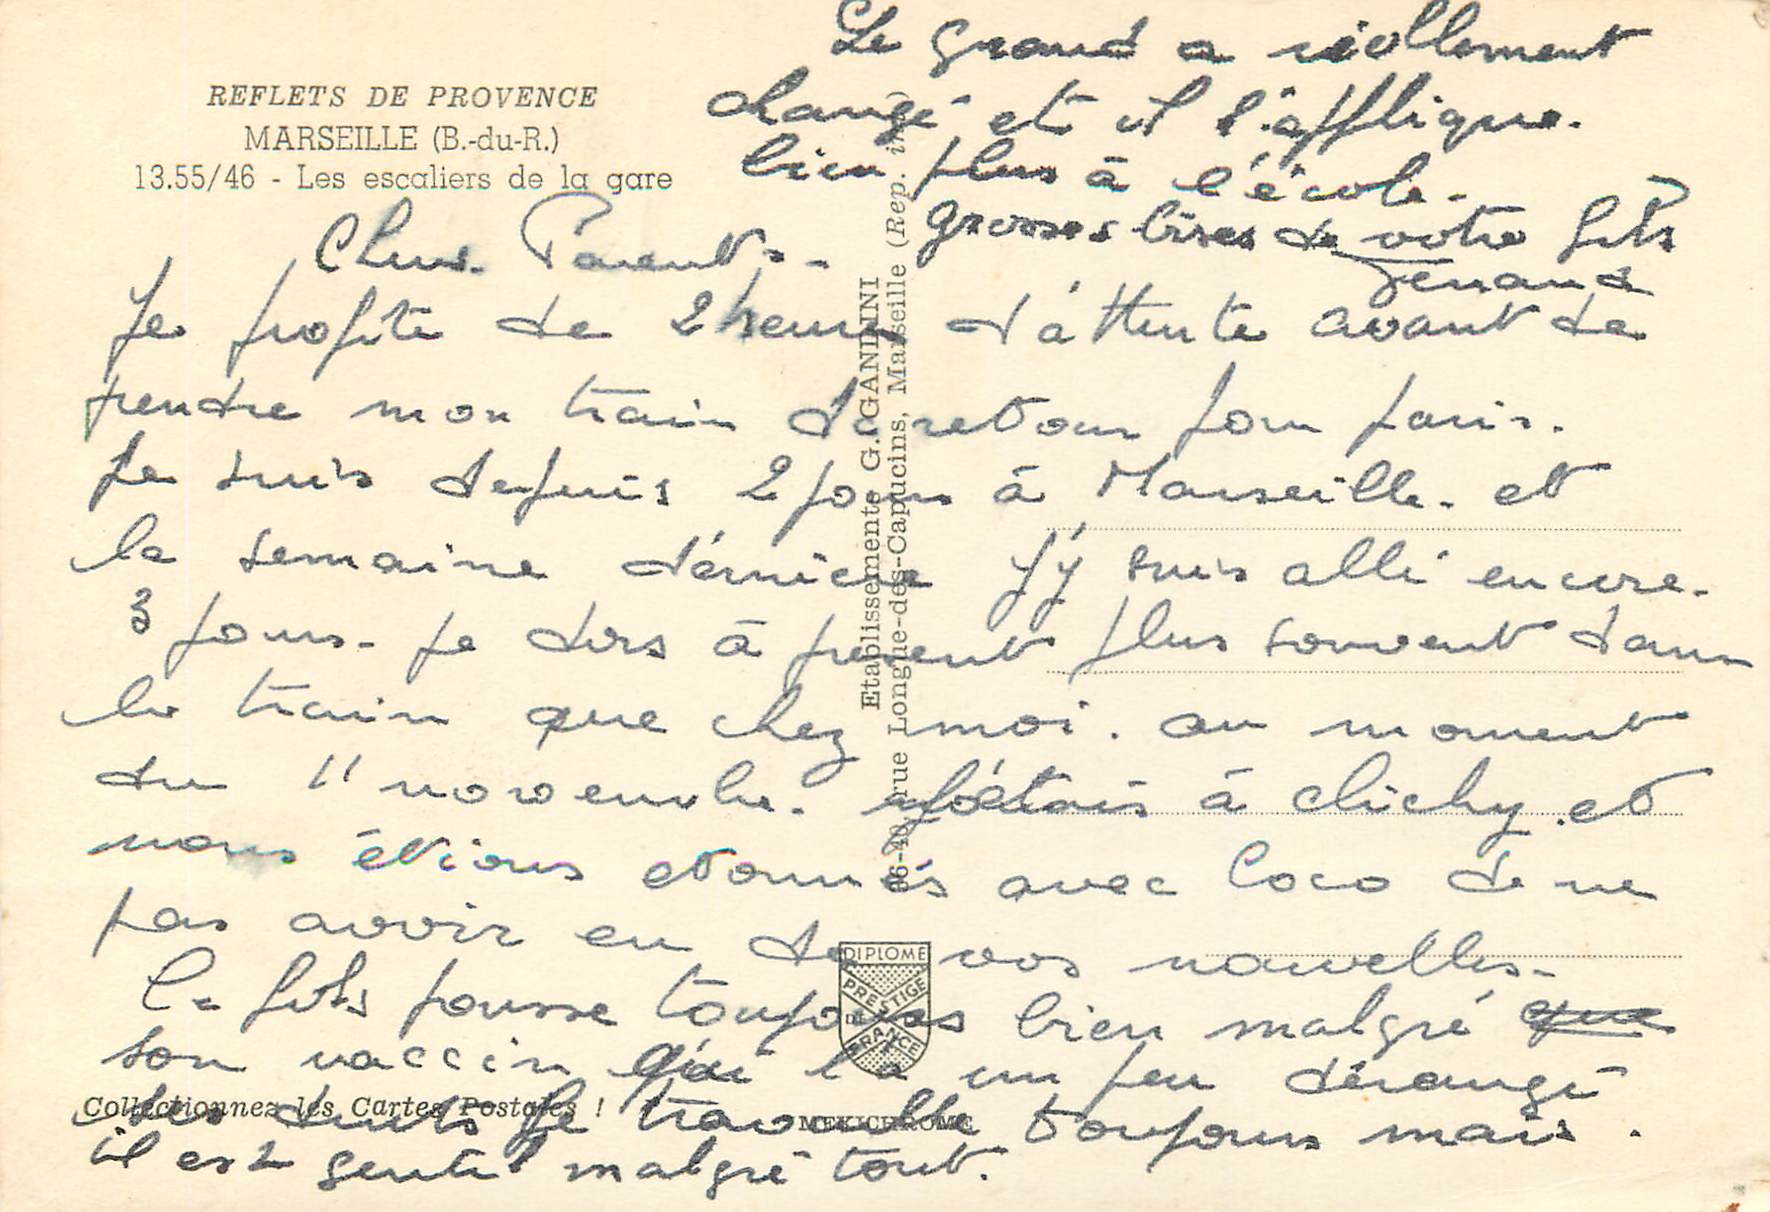 REFLETS DE PROVENCE
MARSEILLE (B.-du-R.)
13.55/46 - Les escaliers de la gare
Chers Parents -
Je profite de 2 heures d'attente avant de
prendre mon train de retour pour paris.
Je suis depuis 2 jours à Marseille. et
la semaine dernière j'y suis allé encore.
3 jours. je dors à present plus souvent dans
le train que chez moi. au moment
du 11 novembre. j'étais à clichy. et
nous étions etonnés avec Coco de ne
pas avoir eu de vos nouvelles.
Le fils pousse toujours bien malgré que
son vaccin qui l'a un peu dérangé
Les dents le travaille toujours mais.
il est gentil malgré tout.
Le grand a réellement
changé et il s'applique.
bien plus à l'école.
grosses bises de votre fils
Etablissements G. GANDINI
36-40, rue Longue-des-Capucins, Marseille (Rep. int.)
DIPLOME
PRESTIGE
DE
FRANCE
Collectionnez les Cartes Postales !
MEXICHROME